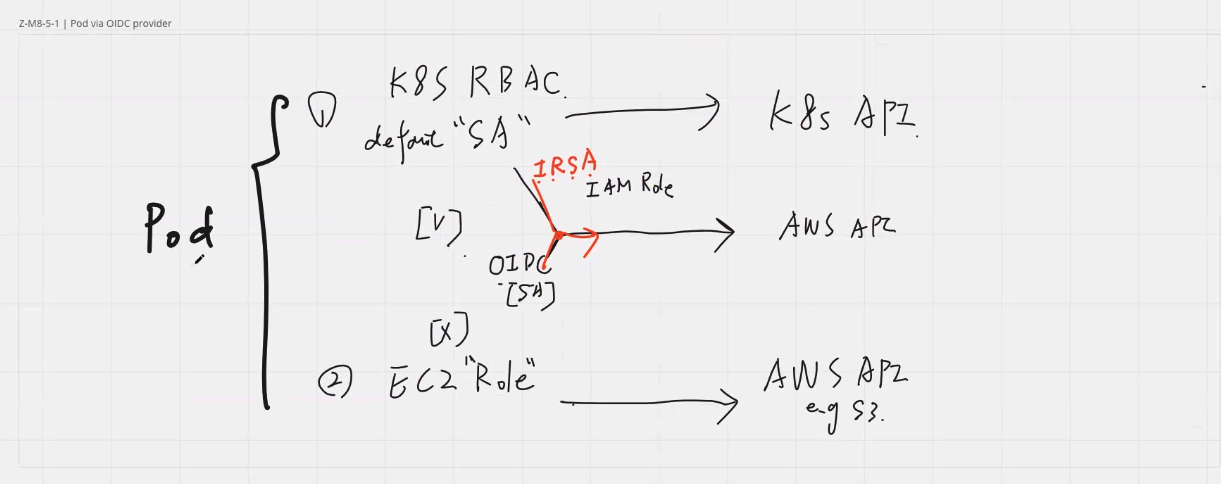 Z-M8-5-1 | Pod via OIDC provider
① K8S RBAC.
default "SA"
K8s API.
IRSA
IAM Role
Pod
[V]
AWS API
OIDC
[SA]
[X]
② EC2 "Role"
AWS API
e.g S3.